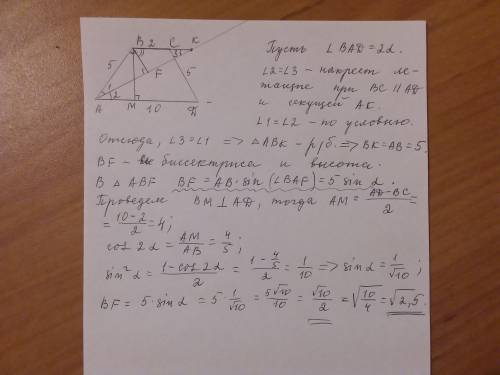 B 2 C K
5 F 5
1 2
A M 10 D
Пусть ∠BAD = 2α.
∠2=∠3 - накрест ле-
жащие при BC ∥ AD
и секущей AK.
∠1=∠2 - по условию.
Отсюда, ∠3=∠1 => △ABK - р/б. => BK=AB=5.
BF - биссектриса и высота.
В △ ABF BF = AB·sin(∠BAF) = 5 sin α.
Проведем BM ⊥ AD, тогда AM = (AD-BC)/2 =
= (10-2)/2 = 4;
cos 2α = AM/AB = 4/5;
sin²α = (1-cos 2α)/2 = (1-4/5)/2 = 1/10 => sin α = 1/√10;
BF = 5·sin α = 5·1/√10 = 5√10/10 = √10/2 = √(10/4) = √2,5.